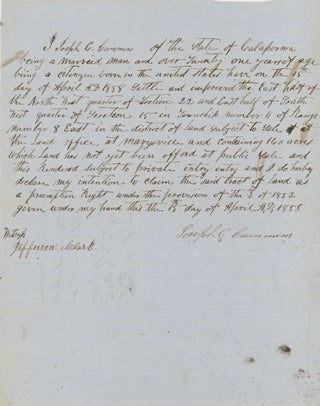 I Joseph C. Cummins of the State of Calafornia
being a married man and over Twenty one years of age
being a citozen born in the united States have on the 15th
day of April AD 1858 Settle and improved the East half of
the North West quarter of Section 22 and East half of South
West quarter of Section 15 in Township number 4 of Range
number 8 East in the district of land subject to Sale at
the Land office at Marysville and containing 160 acres
Which land has not yet been offord at public Sale and
thus Rendered subject to private entry entry and I do hereby
declare my intention to claim the said tract of land as
a preemption Right under the provision of the 3 of 1853
given under my hand this the 15 day of April AD, 1858
Joseph C Cummins
Witness
Jefferson